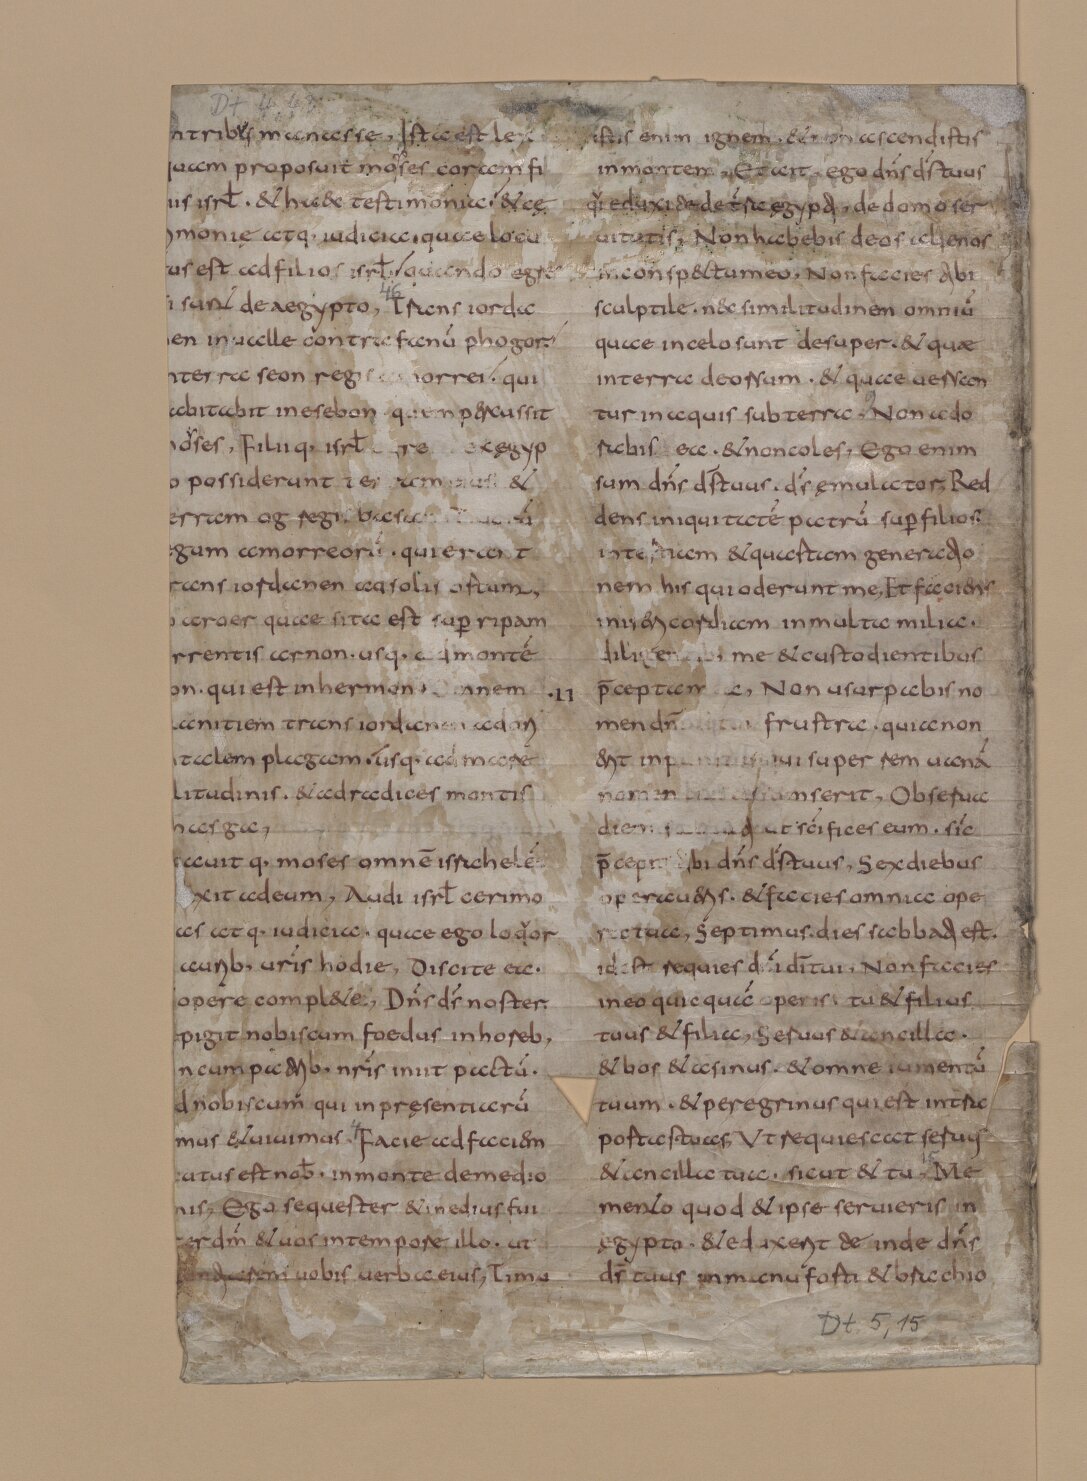 Dt 4,43
ntribus manasse, Ista est lex
quam proposuit moyses coram fi
iis isrł. & haec testimonia. & cę
monię atq. iudicia. quae locu
tus est ad filios isrł. quando egre
i sunt de aegypto, Trans iorda
46
en in ualle contra fanū phogor.
nterra seon regis amorrei. qui
abitabit in esebon quem percussit
moyses, Filiiq. isrł egyp
o possiderunt &
erram og regis basan
egum amorreorū. qui erant
rans iordanen ad solis ortum,
b aroer quae sita est sup̄ ripam
rrentis arnon. usq. ad montē
on. qui est in hermon. Omnem
lanitiem trans iordanen ad ori
talem plagam. usq. ad mare
litudinis. & ad radices montis
hasga,
ocauitq. moses omnē israhelē
ixit ad eum, Audi isrł cerimo
as atq. iudicia. quae ego loquor
aurib, uris hodie, Discite ea.
opere complete, Dns ds noster
pigit nobiscum foedus in horeb,
n cum patrib. nris iniit pactū.
d nobiscum qui in pręsentiarū
mus & uiuimus. Facie ad faciem
4
utus est nob. in monte de medio
nis, Ego sequester & medius fui
er dm & uos in tempore illo. ut
uobis uerba eius, Timu
istis enim ignem. & non ascendistis
in montem, Et ait, ego dns ds tuus
qui eduxi te de tra ęgypti, de domo ser
uitutis, Non habebis deos alienos
in conspectu meo. Non facies tibi
sculptile. nec similitudinem omniū
quae in celo sunt desuper. & quae
in terra deorsum. & quae uersan
tur in aquis sub terra, Non ado
9
rabis ea. & non coles, Ego enim
sum dns ds tuus. ds ęmulator, Red
dens iniquitatē patrū sup̄ filios
in tertiam & quartam generatio
nem his qui oderunt me, Et faciens
misericordiam in multa milia.
diligentib, me & custodientibus
p̄cepta mea, Non usurpabis no
·11
men dni frustra. quia non
erit inpunitus qui super rem uanā
nomen adsumserit, Obserua
diem sabbati ut scifices eum. sic
p̄cepit tibi dns ds tuus, Sex diebus
operaueris. & facies omnia ope
ra tua, Septimus. dies sabbati est.
id est requies dni di tui, Non facies
in eo quicquā operis tu & filius
tuus & filia, Seruus & ancilla.
& bos & asinus. & omne iumentū
tuum. & peregrinus qui est intra
portas tuas, Vt requiescat seruus
& ancilla tua. sicut & tu, Me
15
mento quod & ipse seruieris in
ęgypto. & eduxerit te inde dns
ds tuus in manu forti & brachio
Dt 5,15